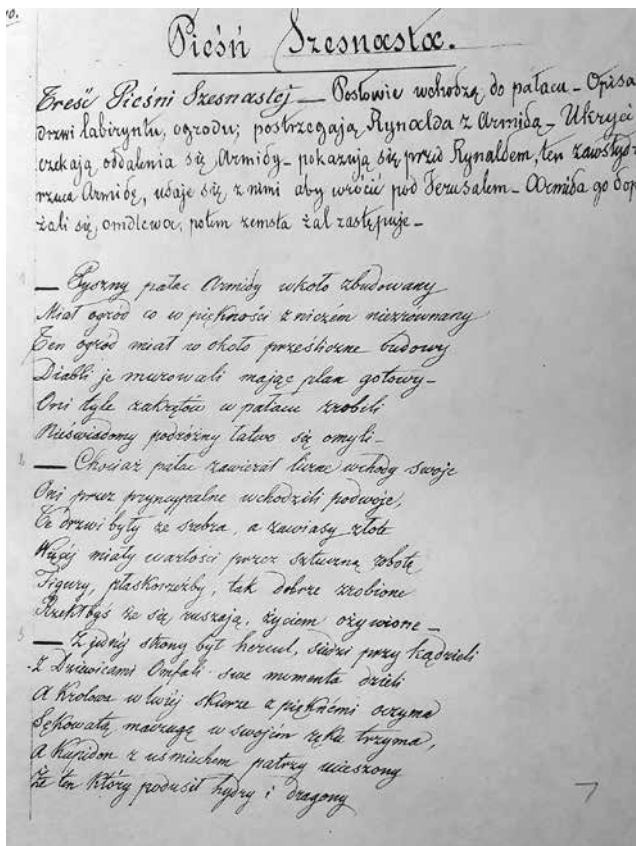 Pieśń Szesnasta.
Treść Pieśni Szesnastej — Posłowie wchodzą do pałacu – Opisa
drzwi labiryntu, ogrodu; postrzegają Rynalda z Armidą – Ukryci
czekają oddalenia się Armidy – pokazują się przed Rynaldem, ten zawstyd-
rzuca Armidę, udaje się z nimi aby wrócić pod Jerusalem – Armida go dop
żali się, omdlewa, potem zemsta żal zastępuje –
1 — Pyszny pałac Armidy wkoło zbudowany
Miał ogród co w piękności z niczém niezrównany
Ten ogród miał w około prześliczne budowy
Diabli je murowali mając plan gotowy –
Oni tyle zakrętów w pałacu zrobili
Nieświadomy podróżny łatwo się omyli –
2 — Chociaż pałac zawierał liczne wchody swoje
Oni przez pryncypalne wchodzili podwoje,
Te drzwi były ze srebra, a zawiasy złote
Więcéj miały wartości przez sztuczną robotę
Figury, płaskorzeźby, tak dobrze zrobione
Rzekłbyś że się ruszają, życiem ożywione –
3 — Z jednéj strony był hercul, siedzi przy kądzieli
Z Dziewicami Omfali swe momenta dzieli
A Krolowa w lwiéj skurze z pięknémi oczyma
Sękowatą maczugę w swojém ręku trzyma,
A Kupidon z uśmiechem patrzy ucieszony
Że ten który podusił hydry i dragony